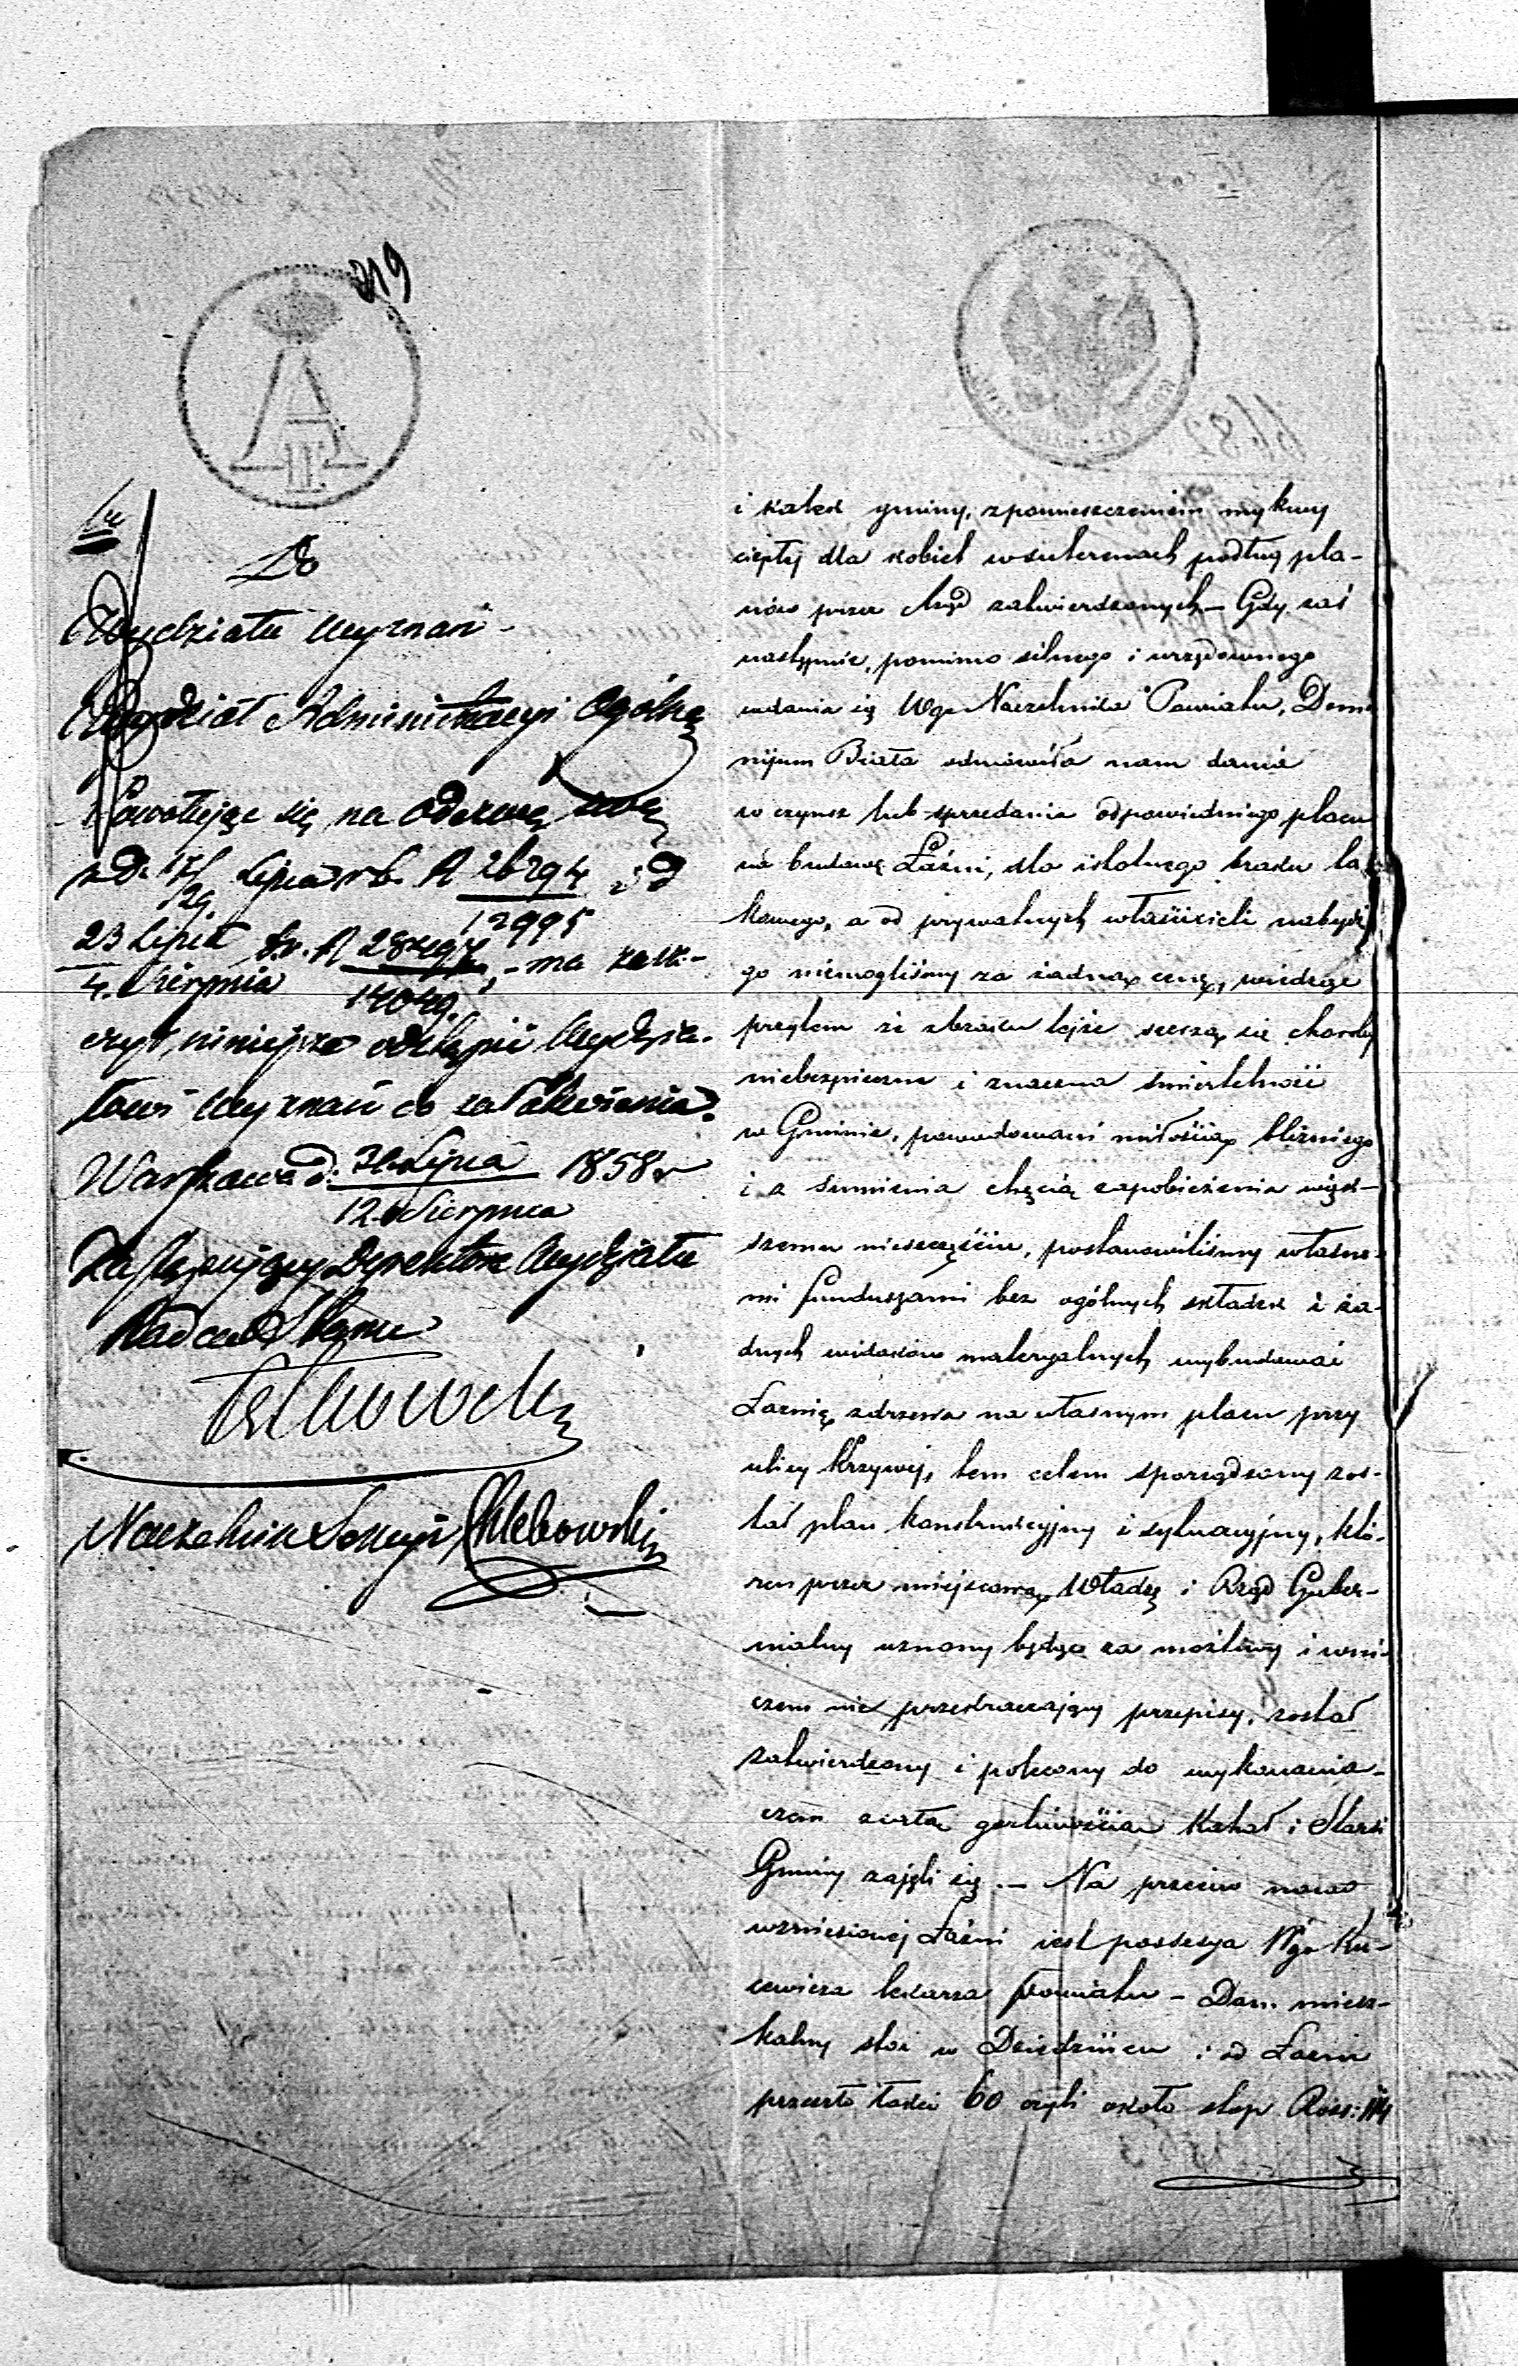 219
A
II
Do
Wydziału Wyznań
Wydział Administracyi Ogólnéj
Powołując się na odezwę swą
z d. 17/29 Lipca r. b. N 26294/12995 i d
23 Lipca/4 Sierpnia b. r. N /14049, - ma zasz-
czyt, niniejsze odstąpić Wydzia-
łowi Wyznań do załatwienia.
Warszawa d. 31 Lipca/12 Sierpnia 1858 r
Zastępujący Dyrektora Wydziału
Radca Stanu
Naczelnik Sekcyi Chlebowski
i szkół gminy, z pomieszczeniem mykwy
ciepłej dla kobiet w suterenach podług pla-
nów przez Rząd zatwierdzonych – Gdy zaś
następnie, pomimo silnego i urzędownego
udania się Wgo Naczelnika Powiatu, Domi
nijum Biała odmówiła nam dania
w czynsz lub sprzedania odpowiedniego placu
na budowę Łaźni, dla istotnego braku ta
kowego, a od prywatnych właścicieli nabydź
go niemogliśmy za żadną cenę, widząc
przytem że z braku tejże szerzą się choroby
niebezpieczne i znaczna śmiertelność
w Gminie, powodowani miłością bliźniego
i z sumienia chęcią zapobieżenia więk-
szemu nieszczęściu, postanowiliśmy własne-
mi funduszami bez ogólnych składek i ża-
dnych widoków materyalnych wybudować
Łaźnię z drzewa na własnym placu przy
ulicy Krzywej, tem celem sporządzony zos-
tał plan konstrukcyjny i sytuacyjny, któ-
ren przez miejscową Władzę i Rząd Guber-
nialny uznany będąc za możliwy i w ni-
czem nie przestraczający przepisy, został
zatwierdzony i polecony do wykonania –
czem z całą gorliwością Kahał i Starsi
Gminy zajęli się. – Na przeciw nowo
wzniesionej Łaźni jest possesya Wgo Ku-
cewicza lekarza Powiatu – Dom miesz-
kalny stoi w Dziedzińcu i od Łaźni
przeszło łokci 60 czyli około stop Ross: 114